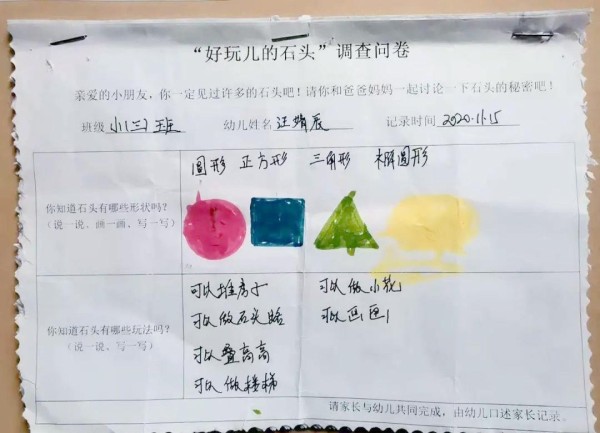 “好玩儿的石头”调查问卷
亲爱的小朋友，你一定见过许多的石头吧！请你和爸爸妈妈一起讨论一下石头的秘密吧！
班级 小(三)班 幼儿姓名 汪靖辰 记录时间 2020.11.15
圆形 正方形 三角形 椭圆形
你知道石头有哪些形状吗？
（说一说、画一画、写一写）
可以堆房子 可以做小花
可以做石头路 可以画画
你知道石头有哪些玩法吗？
（说一说、写一写）
可以叠高高
可以做楼梯
请家长与幼儿共同完成，由幼儿口述家长记录。